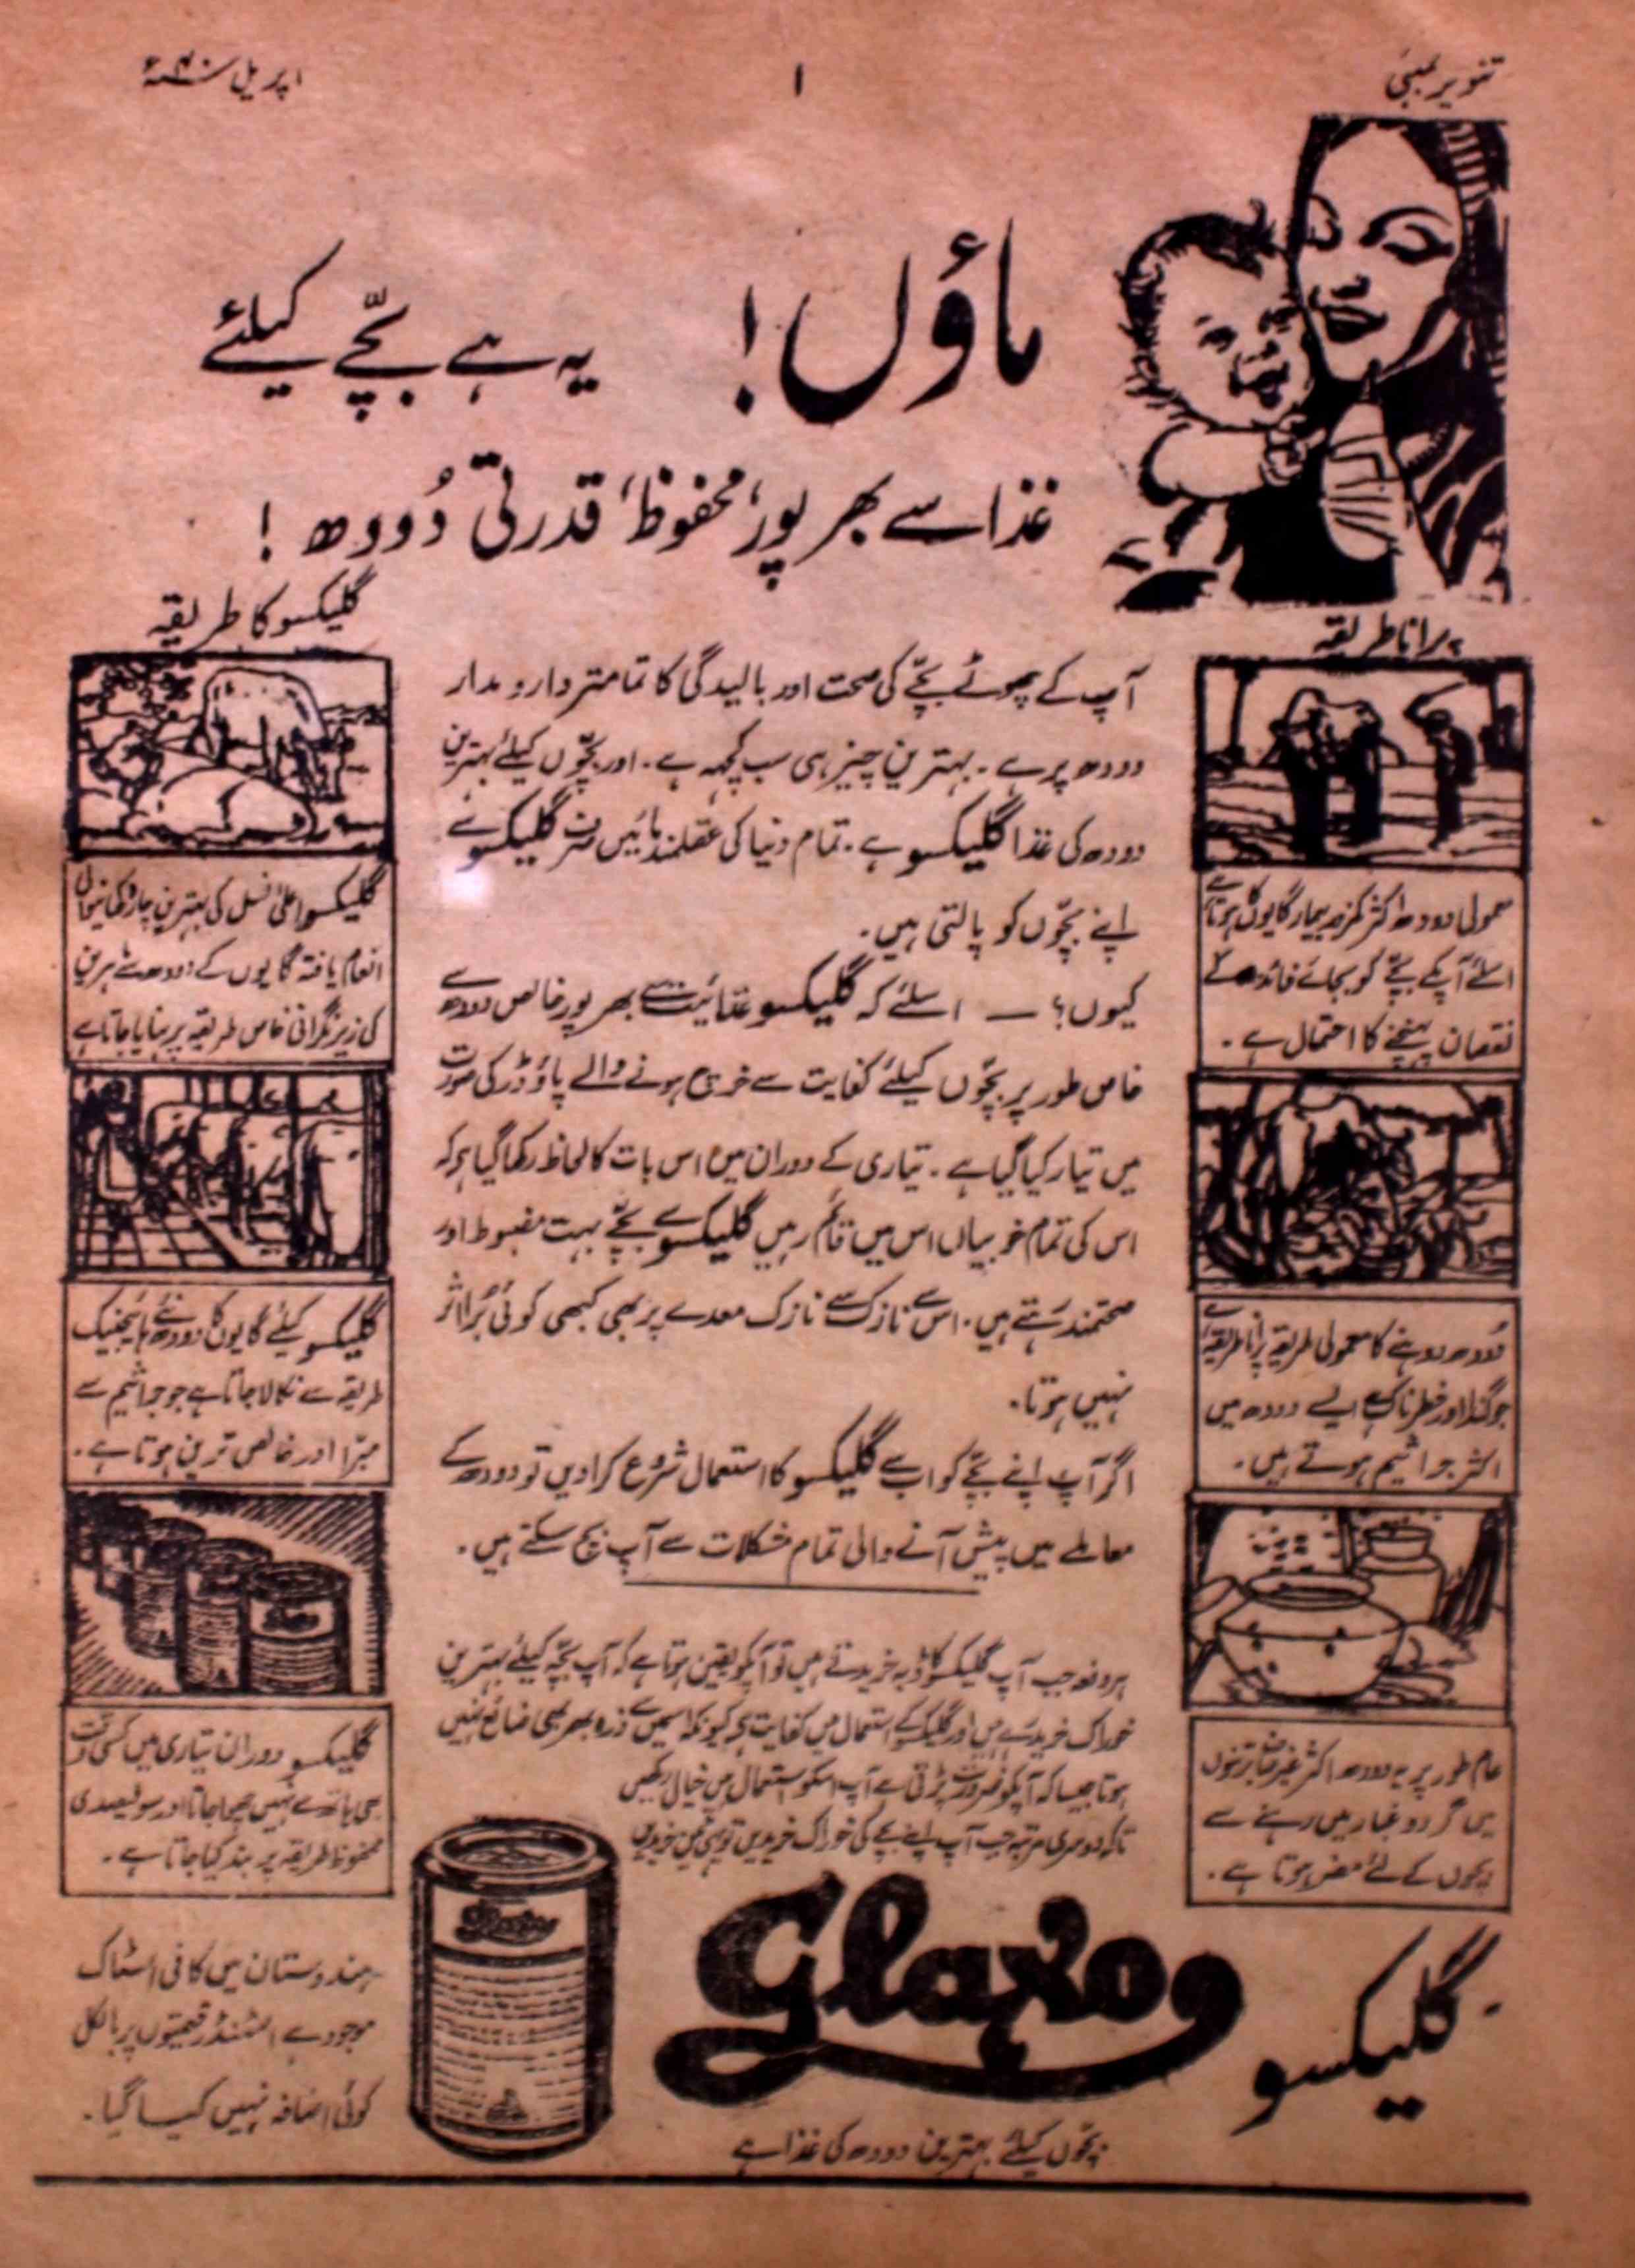 تنویر بمبئی
۱
اپریل سنہ ۴۰ء
ماؤں!
یہ ہے بچّے کیلئے
غذا سے بھرپور، محفوظ، قدرتی دُودھ!
پرانا طریقہ
معمولی دودھ اکثر کمزور بیمار گایوں کا ہوتا ہے
اسلئے آپکے بچّے کو بجائے فائدہ کے
نقصان پہنچنے کا احتمال ہے۔
دُودھ دوہنے کا معمولی طریقہ پُرانا طریقہ ہے
جو گندا اور خطرناک ہے ایسے دودھ میں
اکثر جراثیم ہوتے ہیں۔
عام طور پر یہ دودھ اکثر غیر صاف برتنوں
میں گرد و غبار میں رہنے سے
بچوں کے لئے مضر ہوتا ہے۔
آپ کے چھوٹے بچّے کی صحت اور بالیدگی کا تمامتر دار و مدار
دودھ پر ہے۔ بہترین چیز ہی سب کچھ ہے۔ اور بچّوں کیلئے بہترین
دودھ کی غذا گلیکسو ہے۔ تمام دنیا کی عقلمند مائیں صرف گلیکسو سے
اپنے بچّوں کو پالتی ہیں۔
کیوں؟ — اسلئے کہ گلیکسو غذائیت سے بھرپور خالص دودھ سے
خاص طور پر بچّوں کیلئے کفایت سے خرچ ہونے والے پاؤڈر کی صورت
میں تیار کیا گیا ہے۔ تیاری کے دوران میں اس بات کا لحاظ رکھا گیا ہے کہ
اس کی تمام خوبیاں اس میں قائم رہیں گلیکسو سے بچّے بہت مضبوط اور
صحتمند رہتے ہیں۔ اس سے نازک سے نازک معدے پر بھی کبھی کوئی بُرا اثر
نہیں ہوتا۔
اگر آپ اپنے بچّے کو اب سے گلیکسو کا استعمال شروع کرا دیں تو دودھ کے
معاملے میں پیش آنے والی تمام مشکلات سے آپ بچ سکتے ہیں۔
ہر دفعہ جب آپ گلیکسو کا ڈبہ خریدتے ہیں تو آپکو یقین ہوتا ہے کہ آپ بچّہ کیلئے بہترین
خوراک خرید رہے ہیں اور گلیکسو کے استعمال میں کفایت ہے کیونکہ اسمیں سے ذرہ بھر بھی ضائع نہیں
ہوتا جیسا کہ آپکو ضرورت پڑتی ہے آپ اسکو استعمال میں خیال رکھیں
تاکہ دوسری مرتبہ جب آپ اپنے بچے کی خوراک خریدیں تو یہی خریدیں
گلیکسو کا طریقہ
گلیکسو اعلیٰ نسل کی بہترین چارہ کھانیوالی
انعام یافتہ گایوں کے دودھ سے ماہرین
کی زیر نگرانی خاص طریقہ پر بنایا جاتا ہے
گلیکسو کیلئے گایوں کا دودھ نئے ہائیجینک
طریقے سے نکالا جاتا ہے جو جراثیم سے
مبّرا اور خالص ترین ہوتا ہے۔
گلیکسو دوران تیاری میں کسی وقت
بھی ہاتھ سے نہیں چھوا جاتا اور سو فیصدی
محفوظ طریقہ پر بند کیا جاتا ہے۔
ہندوستان میں کافی اسٹاک
موجود ہے اسٹنڈرڈ قیمتوں پر بالکل
کوئی اضافہ نہیں کیا گیا۔
Glaxo
Glaxo
Glaxo
گلیکسو
بچّوں کیلئے بہترین دودھ کی غذا ہے